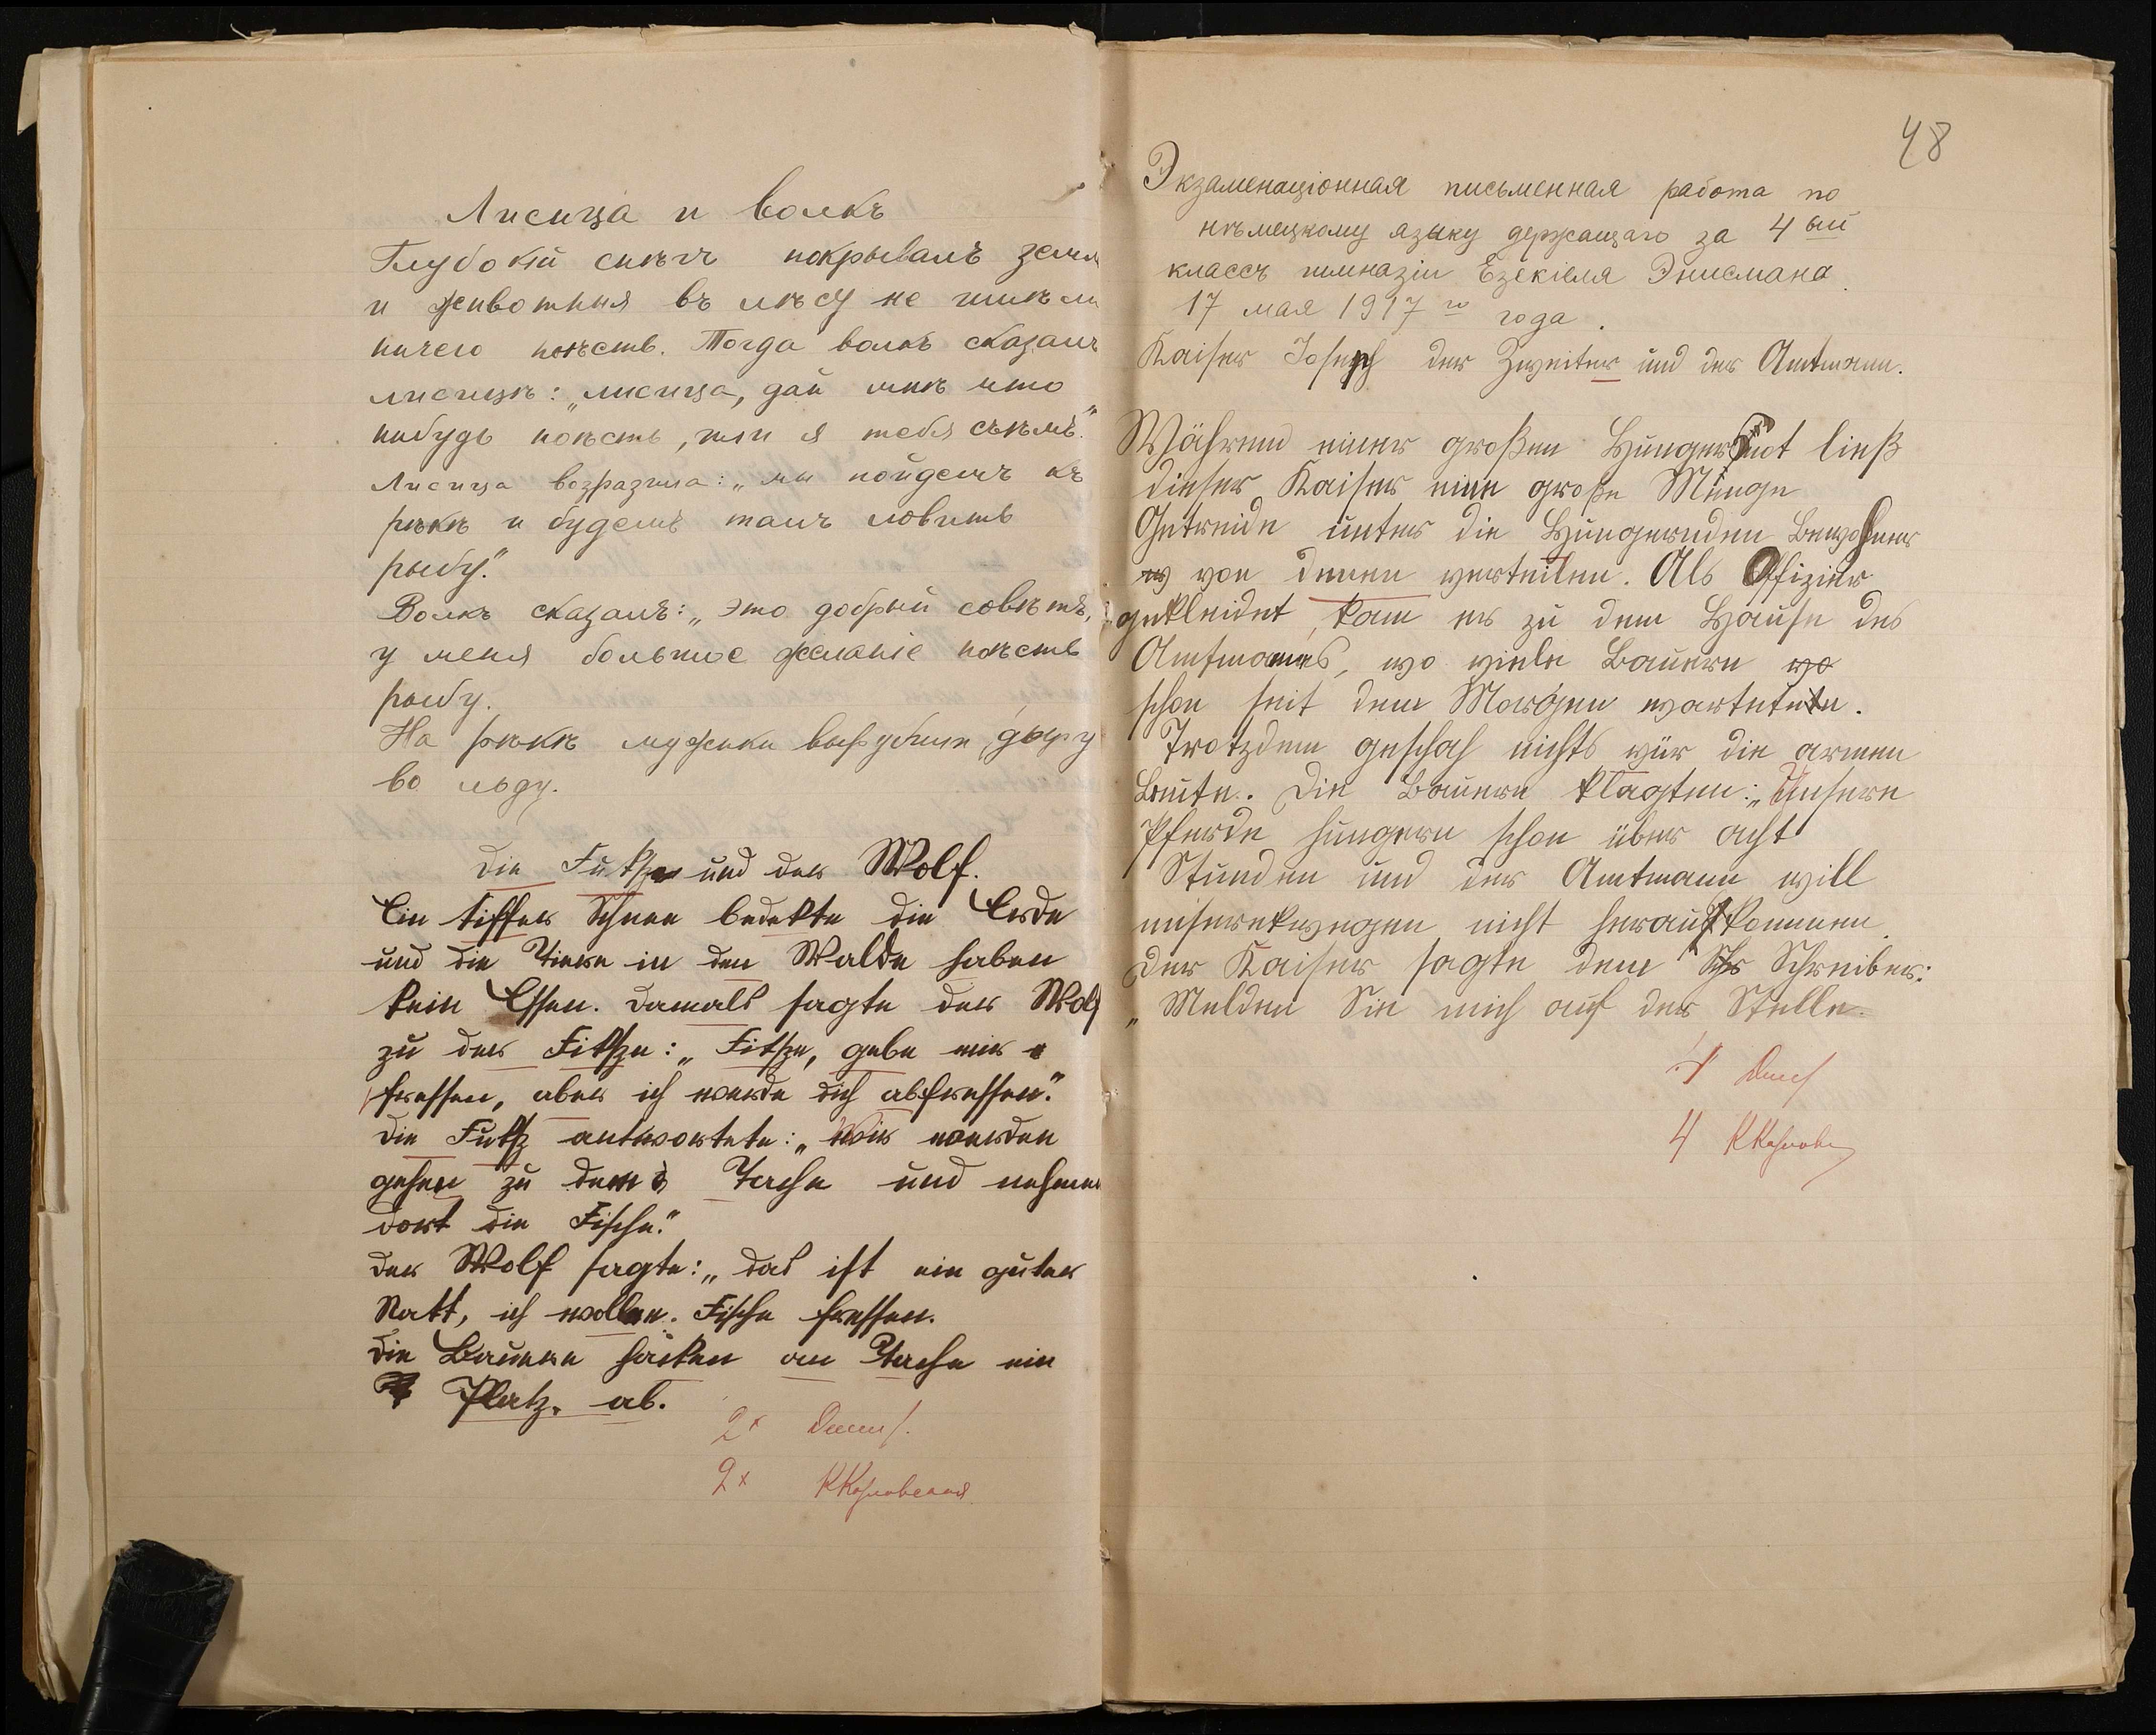 Лисица и волкъ
Глубокій снѣгъ покрывалъ земл
и животныя въ лѣсу не имѣли
ничего поѣсть. Тогда волкъ сказалъ
лисицѣ: „лисица, дай мнѣ что
нибудь поѣсть, или я тебя съѣмъ".
Лисица возразила: „мы пойдемъ къ
рѣкѣ и будемъ тамъ ловить
рыбу".
Волкъ сказалъ: „это добрый совѣтъ,
у меня большое желаніе поѣсть
рыбу.
На рѣкѣ мужики вырубили дыру
во льду.
Die Fukse und der Wolf.
Ein tiffer Schnee bedekte die Erde
und die Tiere in den Walde haben
kein Essen. Damals sagte der Wolf
zu der Fikse: „Fikse, gebe mir
fressen, aber ich werde dich abfressen."
Die Fuks antwortete: „Wir werden
gehen zu dem Teche und nehmen
dort die Fische."
Der Wolf sagte: „das ist ein guter
Ratt, ich wollen. Fische fressen.
Die Bauere häcken an Teche ein
Platz. ab.
2x
2x ККозловская
48
Экзаменаціонная письменная работа по
нѣмецкому языку держащаго за 4 ый
классъ гимназіи Езекіеля Энисмана.
17 мая 1917 го года.
Kaiser Joseph der Zweiter und der Amtmann.
Während einer großen Hungersnot ließ
dieser Kaiser eine große Menge
Getreide unter die Hungernden Bewohner
w von denen verteilen. Als Offizier
gekleidet, kam er zu dem Hause des
Amtmanns, wo viele Bauern wo
schon seit dem Morgen warteten.
Trotzdem geschah nichts vür die armen
Leute. Die Bauern klagten: „Unsere
Pferde hungern schon über acht
Stunden und der Amtmann will
unseretwegen nicht herauskommen.
Der Kaiser sagte dem Schr Schreiber:
„Melden Sie mich auf der Stelle.
4
4 ККозловс